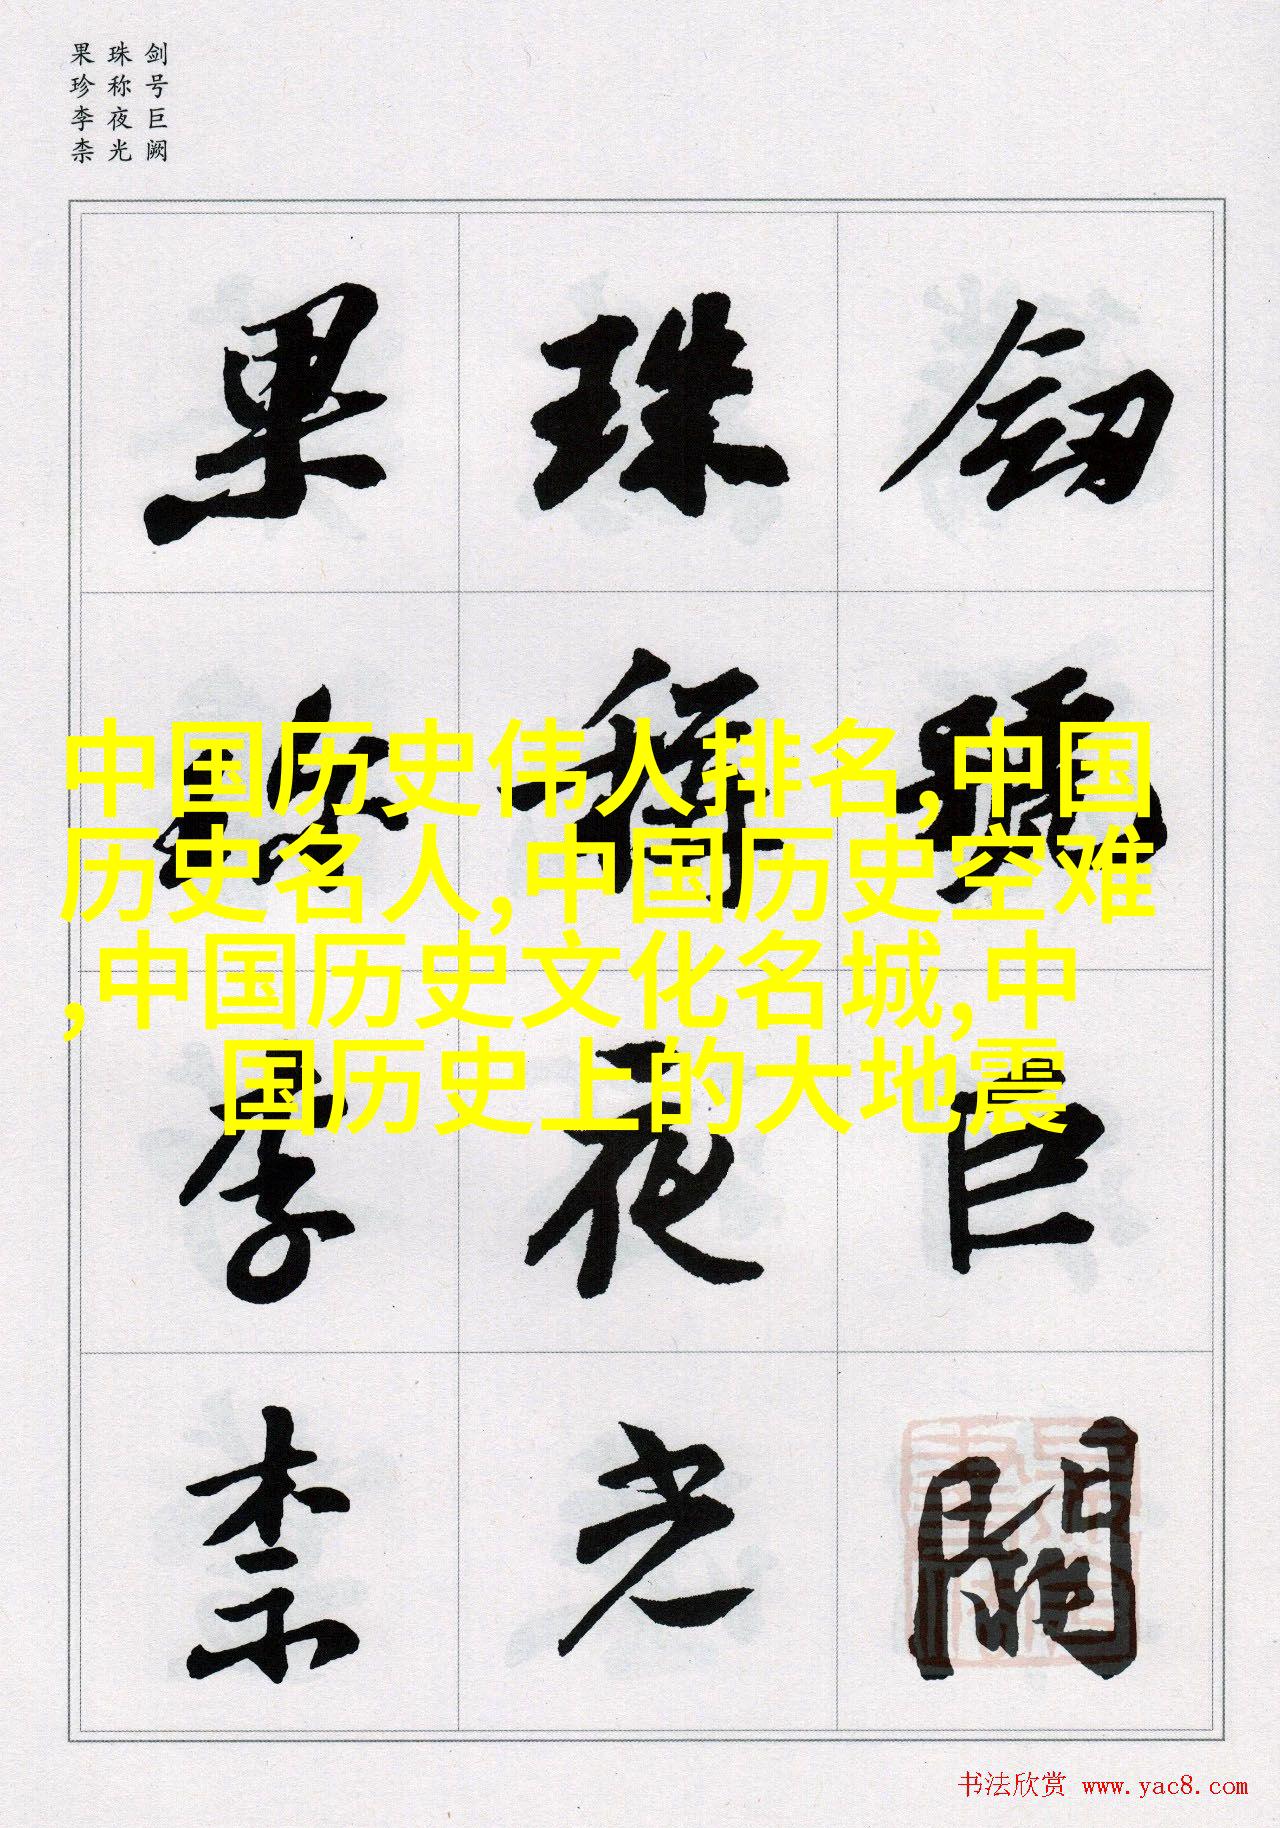 剑号巨阙
珠称夜光
果珍李柰
劒號巨闕
珠稱夜光
果珍李柰
中国历史伟人排名,中国
历史名人,中国历史空难
,中国历史文化名城,中
国历史上的大地震
书法欣赏 www.yac8.com